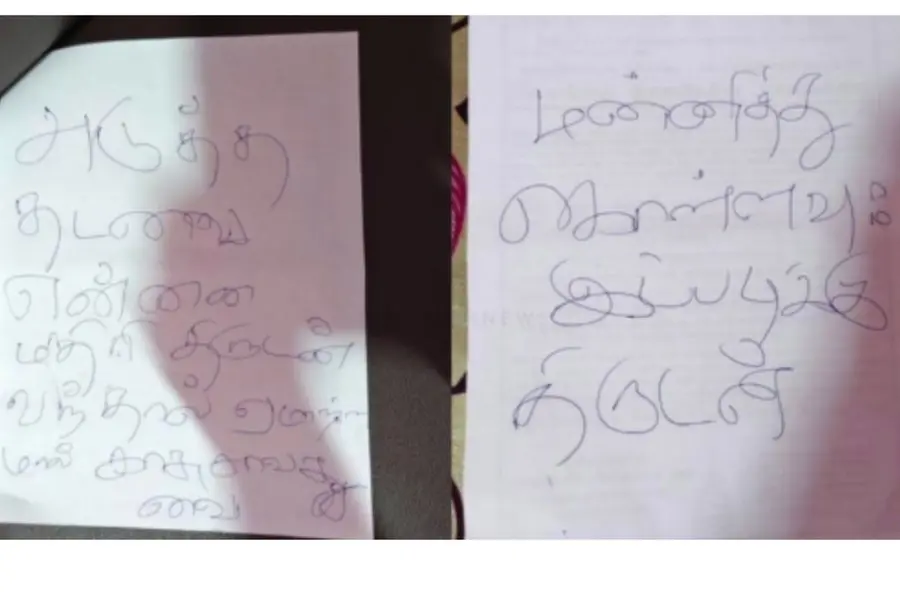 அடுத்த
தடவை
என்னை
மதிரி திருடன்
வந்தால் ஏமாற்ற
மால் காசுசாவது
வை
மன்னித்து
கொள்ளவும்
இப்படிக்கு
திருடன்